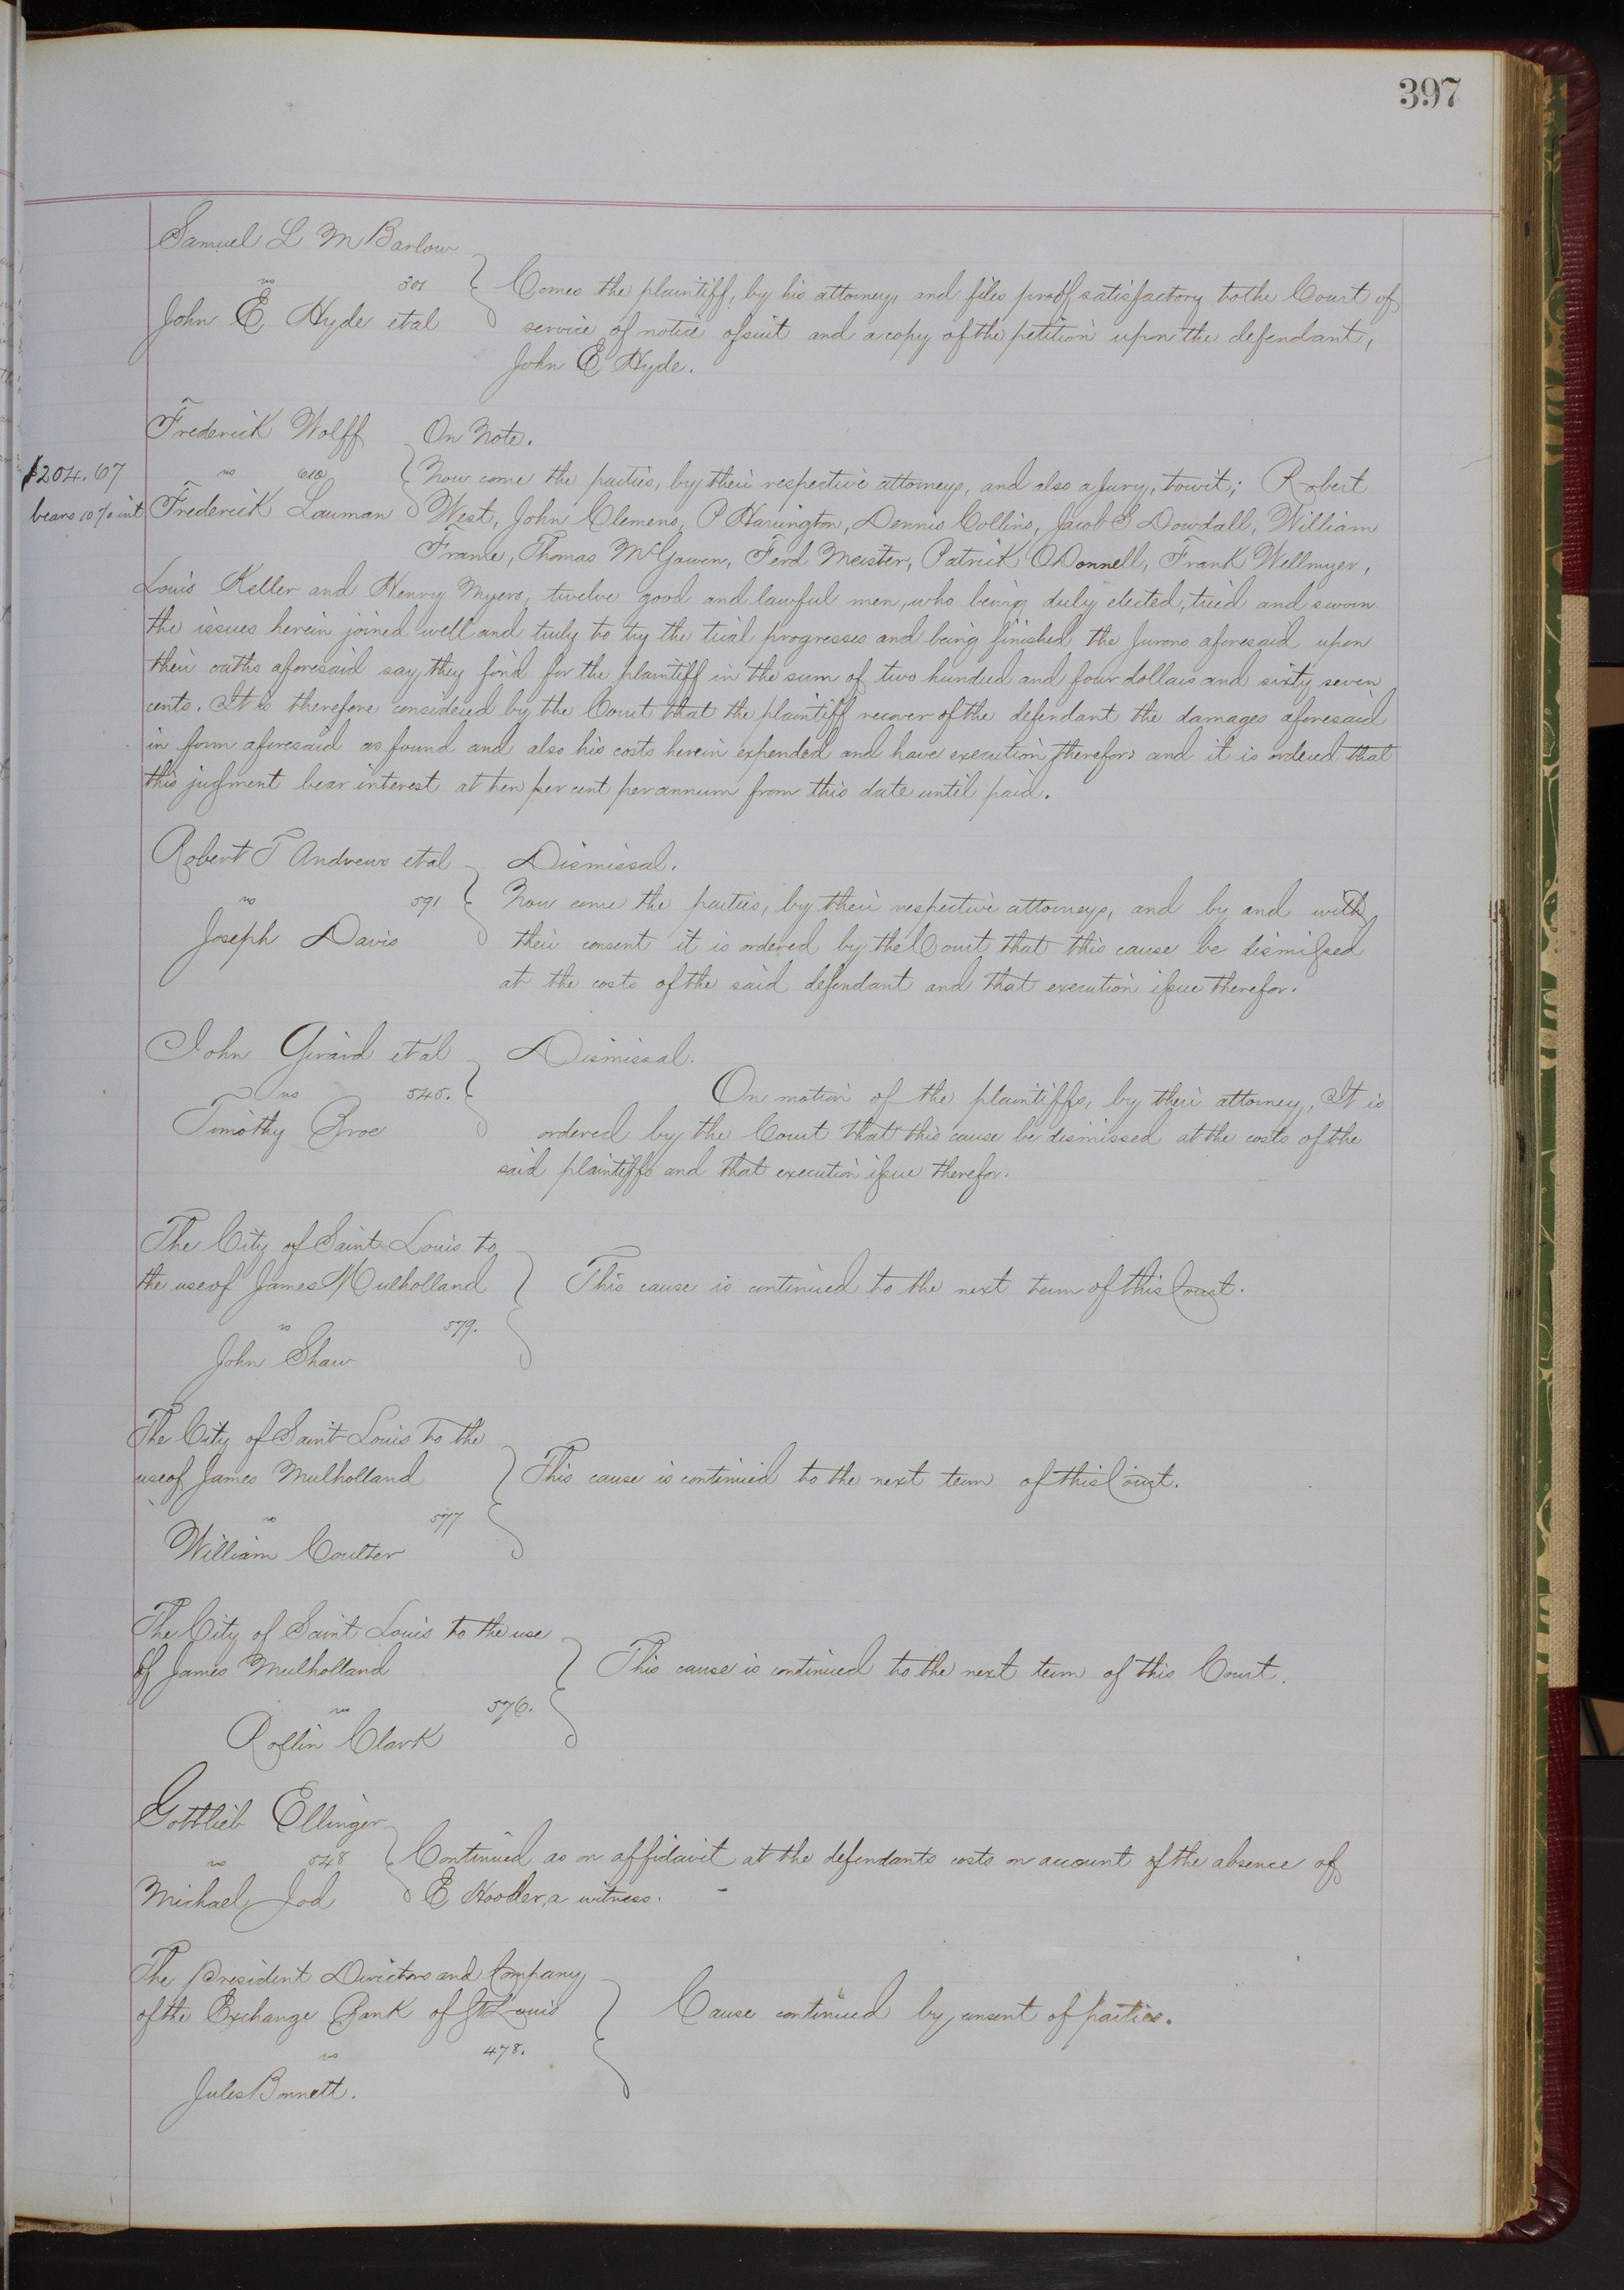 397
Samuel L M Barlow
vs 301
John E Hyde et al
Comes the plaintiff, by his attorney, and files proof satisfactory to the Court of
service of notice of suit and a copy of the petition upon the defendant,
John E Hyde.
Frederick Wolff
vs 610
Frederick Lauman
$204.67
bears 10% int
On Note.
Now come the parties, by their respective attorneys, and also a jury, towit; Robert
West, John Clemens, P Harrington, Dennis Collins, Jacob S Dowdall, William
Frame, Thomas McGowen, Ferd Meister, Patrick O'Donnell, Frank Wellmyer,
Louis Keller and Henry Myers, twelve good and lawful men, who being duly elected, tried and sworn
the issues herein joined well and truly to try the trial progresses and being finished the Jurors aforesaid upon
their oaths aforesaid say they find for the plaintiff in the sum of two hundred and four dollars and sixty seven
cents. It is therefore considered by the Court that the plaintiff recover of the defendant the damages aforesaid
in form aforesaid as found and also his costs herein expended and have execution therefor and it is ordered that
this judgment bear interest at ten per cent per annum from this date until paid.
Robert T Andrews et al
vs 591
Joseph Davis
Dismissal.
Now come the parties, by their respective attorneys, and by and with
their consent it is ordered by the Court that this cause be dismissed
at the costs of the said defendant and that execution issue therefor.
John Girard et al
vs 545.
Timothy
Dismissal.
On motion of the plaintiffs, by their attorney, It is
ordered by the Court that this cause be dismissed at the costs of the
said plaintiffs and that execution issue therefor.
The City of Saint Louis to
the use of James Mulholland
vs 579.
John Shaw
This cause is continued to the next term of this Court.
The City of Saint Louis to the
use of James Mulholland
vs 577
William Coulter
This cause is continued to the next term of this Court.
The City of Saint Louis to the use
of James Mulholland
vs 576.
Rollin Clark
This cause is continued to the next term of this Court.
Gottlieb Ellinger
vs 548
Michael Jod
Continued as on affidavit at the defendants costs on account of the absence of
E a witness.
The President Directors and Company
of the Exchange Bank of St Louis
vs 478.
Jules Bonnett.
Cause continued by consent of parties.